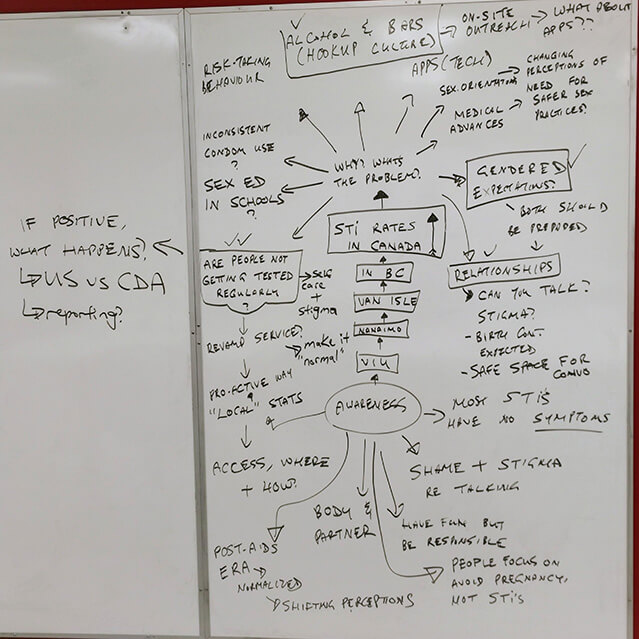 ALCOHOL & BARS
(HOOKUP CULTURE)
ON-SITE
OUTREACH
WHAT ABOUT
APPS??
RISK-TAKING
BEHAVIOUR
APPS (TECH)
SEX. ORIENTATION
CHANGING
PERCEPTIONS OF
NEED FOR
SAFER SEX
PRACTICES?
MEDICAL
ADVANCES
INCONSISTENT
CONDOM USE
?
WHY? WHATS
THE PROBLEM?
GENDERED
EXPECTATIONS?
SEX ED
IN SCHOOLS
?
BOTH SHOULD
BE PREPARED
STI RATES
IN CANADA
IF POSITIVE,
WHAT HAPPENS?
US VS CDA
reporting?
ARE PEOPLE NOT
GETTING TESTED
REGULARLY
?
self
care
+
stigma
IN BC
VAN ISLE
NANAIMO
VIU
RELATIONSHIPS
CAN YOU TALK?
STIGMA?
- BIRTH CONT.
EXPECTED
- SAFE SPACE FOR
CONVO
REVAMP SERVICE?
make it
"normal"
PRO-ACTIVE WAY
"LOCAL" STATS
AWARENESS
MOST STI'S
HAVE NO SYMPTOMS
ACCESS, WHERE
+ HOW?
SHAME + STIGMA
RE TALKING
BODY &
PARTNER
HAVE FUN BUT
BE RESPONSIBLE
POST-AIDS
ERA
NORMALIZED
SHIFTING PERCEPTIONS
PEOPLE FOCUS ON
AVOID PREGNANCY,
NOT STI'S